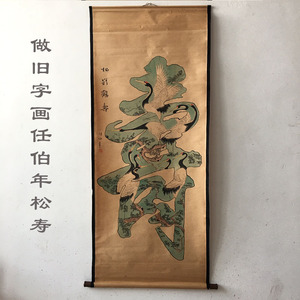 做旧字画任伯年松寿
松龄鹤寿
寿